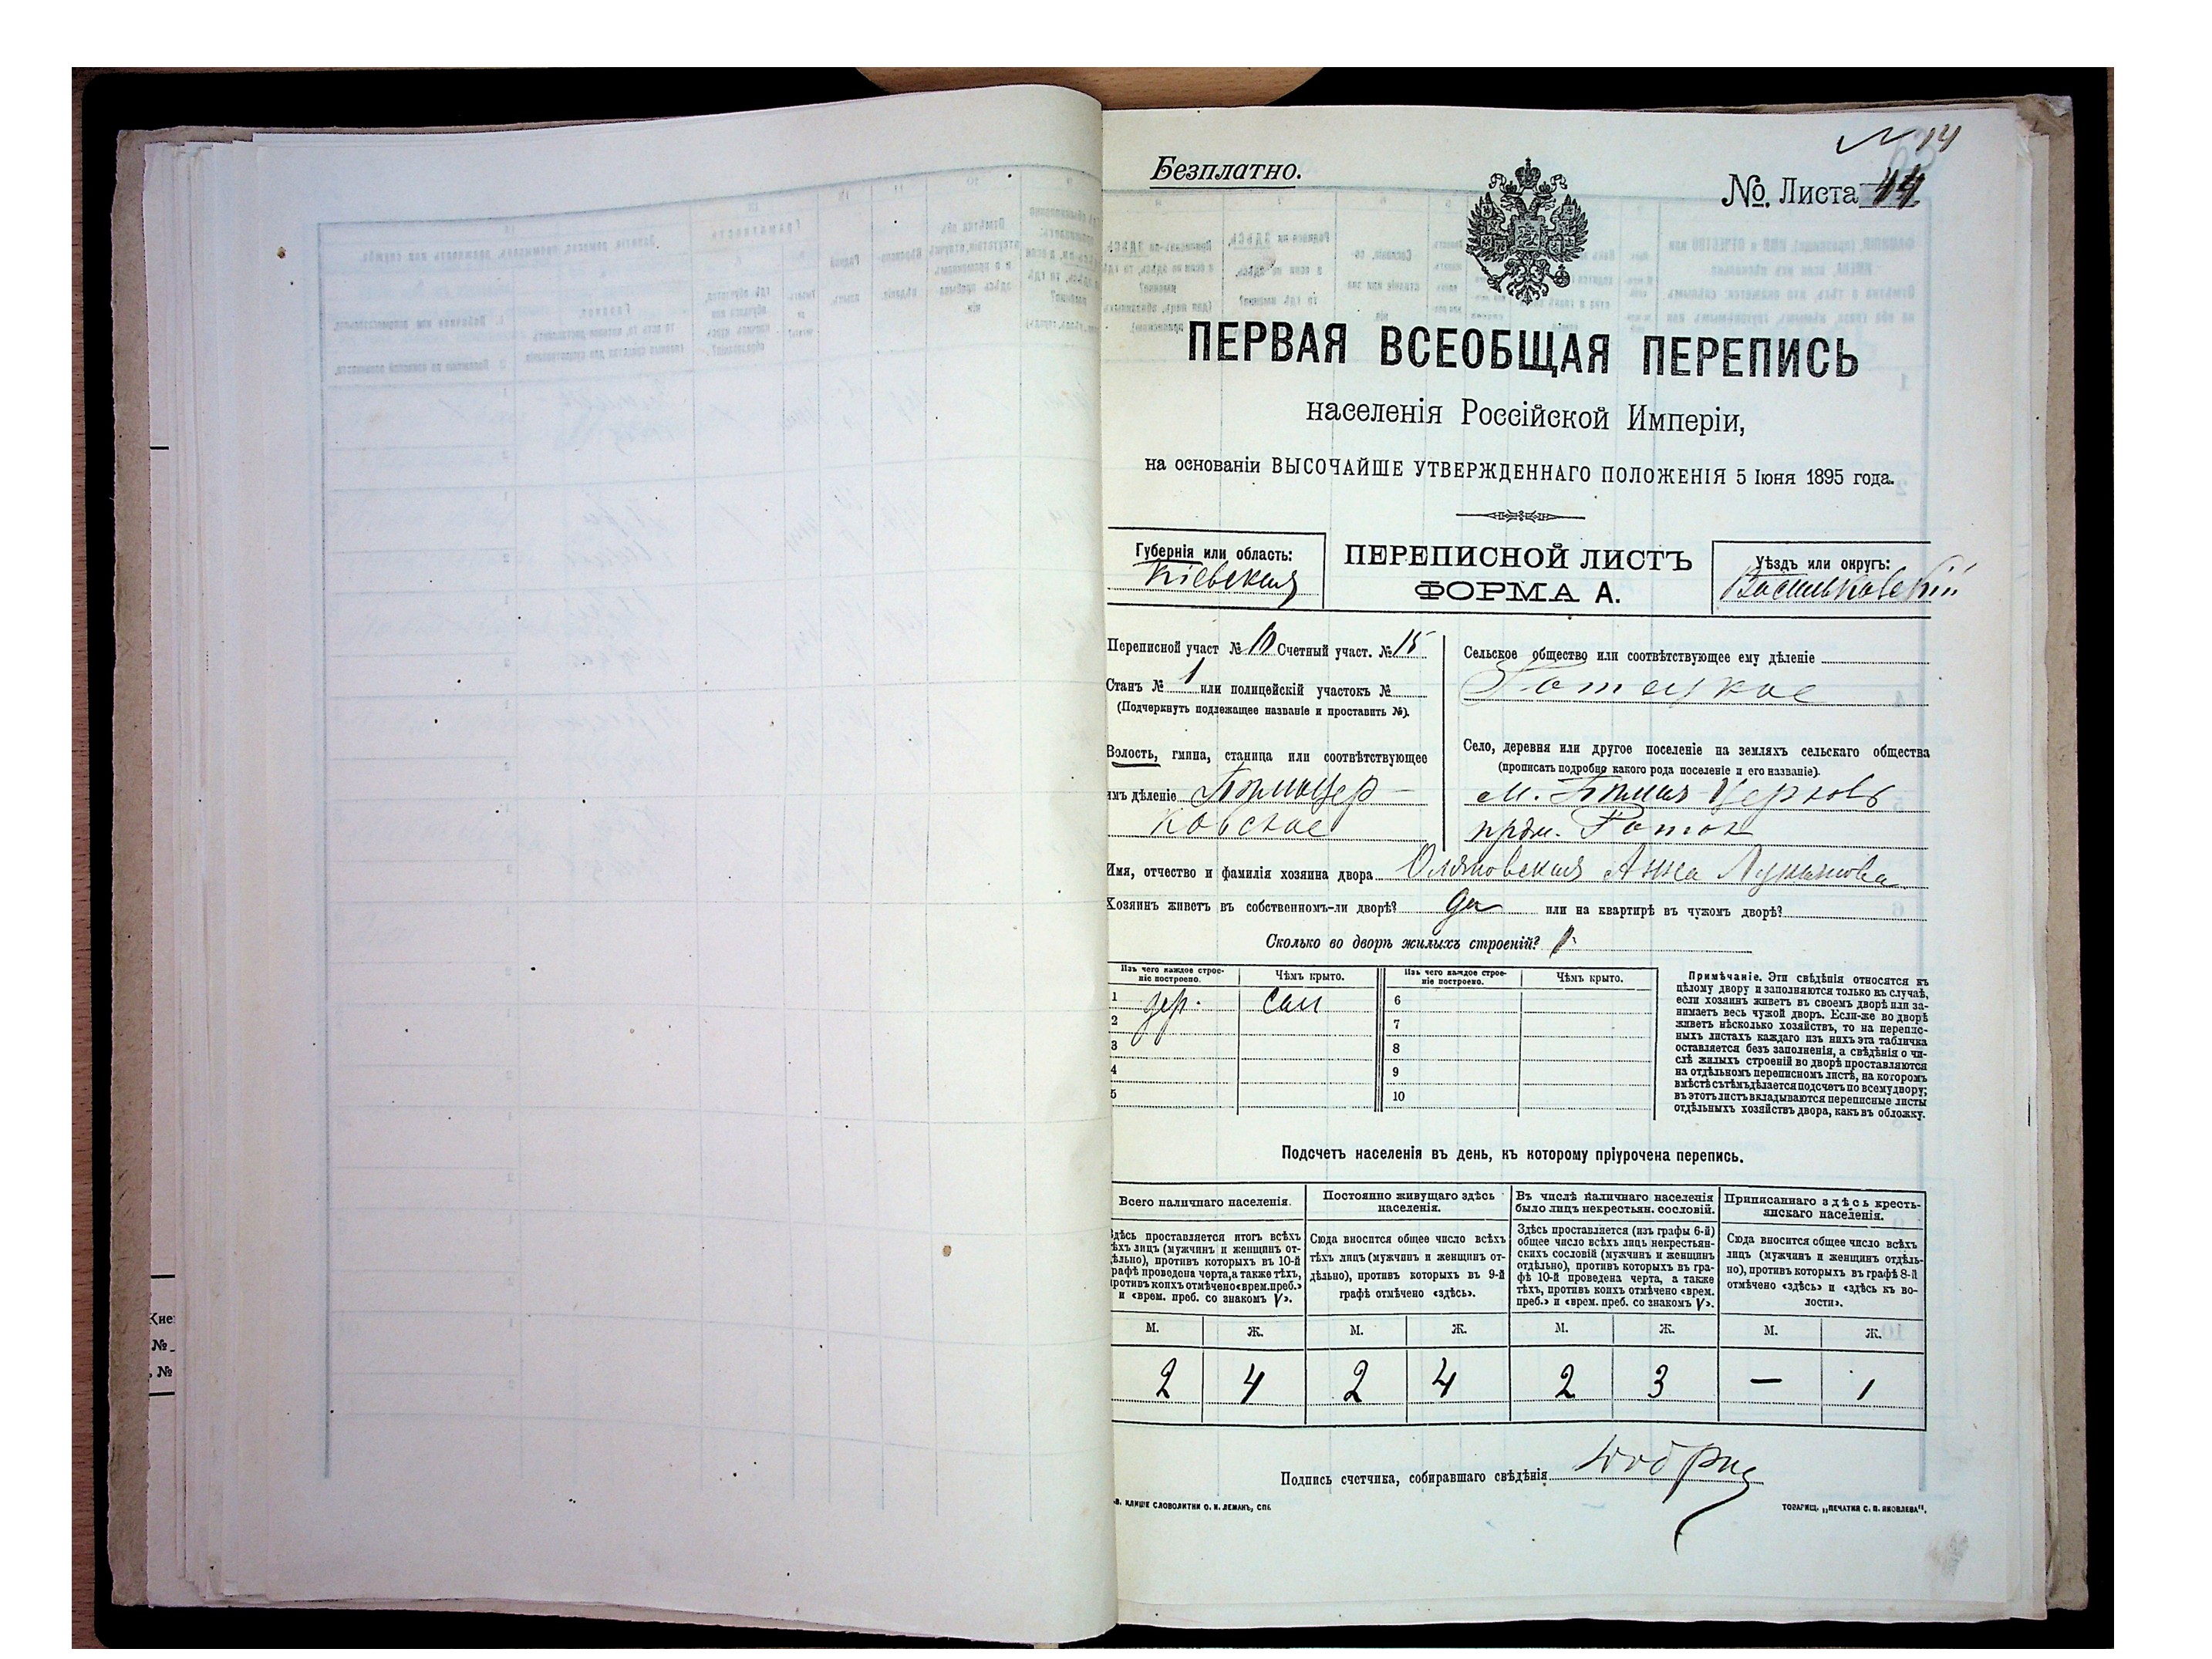 N 14
Безплатно.
№. Листа 44
ПЕРВАЯ ВСЕОБЩАЯ ПЕРЕПИСЬ
населенія Россійской Имперіи,
на основаніи ВЫСОЧАЙШЕ УТВЕРЖДЕННАГО ПОЛОЖЕНІЯ 5 Іюня 1895 года.
Губернія или область:
Кіевская
ПЕРЕПИСНОЙ ЛИСТЪ
ФОРМА А.
Уѣздъ или округъ:
Васильковскій
Переписной участ № 10 Счетный участ. № 15
Станъ № 1 или полицейскій участокъ №
(Подчеркнуть подлежащее названіе и проставить №).
Волость, гмина, станица или соотвѣтствующее
имъ дѣленіе Бѣлоцер-
ковское
Сельское общество или соотвѣтствующее ему дѣленіе
Ротецкое
Село, деревня или другое поселеніе на земляхъ сельскаго общества
(прописать подробно какого рода поселеніе и его названіе).
м. Бѣлая Церковь
прдм. Роток
Имя, отчество и фамилія хозяина двора Анна
Хозяинъ живетъ въ собственномъ-ли дворѣ? да или на квартирѣ въ чужомъ дворѣ?
Сколько во дворѣ жилыхъ строеній? 1.
Изъ чего каждое строе-
ніе построено.
Чѣмъ крыто.
Изъ чего каждое строе-
ніе построено.
Чѣмъ крыто.
1 дер. сол 6
2 7
3 8
4 9
5 10
Примѣчаніе. Эти свѣдѣнія относятся къ
цѣлому двору и заполняются только въ случаѣ,
если хозяинъ живетъ въ своемъ дворѣ или за-
нимаетъ весь чужой дворъ. Если-же во дворѣ
живетъ нѣсколько хозяйствъ, то на перепис-
ныхъ листахъ каждаго изъ нихъ эта табличка
оставляется безъ заполненія, а свѣдѣнія о чи-
слѣ жилыхъ строеній во дворѣ проставляются
на отдѣльномъ переписномъ листѣ, на которомъ
вмѣстѣ съ тѣмъ дѣлается подсчетъ по всему двору;
въ этотъ листъ вкладываются переписные листы
отдѣльныхъ хозяйствъ двора, какъ въ обложку.
Подсчетъ населенія въ день, къ которому пріурочена перепись.
Всего наличнаго населенія.
Здѣсь проставляется итогъ всѣхъ
тѣхъ лицъ (мужчинъ и женщинъ от-
дѣльно), противъ которыхъ въ 10-й
графѣ проведена черта, а также тѣхъ,
противъ коихъ отмѣчено «врем. преб.»
и «врем. преб. со знакомъ V».
Постоянно живущаго здѣсь
населенія.
Сюда вносится общее число всѣхъ
тѣхъ лицъ (мужчинъ и женщинъ от-
дѣльно), противъ которыхъ въ 9-й
графѣ отмѣчено «здѣсь».
Въ числѣ наличнаго населенія
было лицъ некрестьян. сословій.
Здѣсь проставляется (изъ графы 6-й)
общее число всѣхъ лицъ некрестьян-
скихъ сословій (мужчинъ и женщинъ
отдѣльно), противъ которыхъ въ гра-
фѣ 10-й проведена черта, а также
тѣхъ, противъ коихъ отмѣчено «врем.
преб.» и «врем. преб. со знакомъ V».
Приписаннаго здѣсь кресть-
янскаго населенія.
Сюда вносится общее число всѣхъ
лицъ (мужчинъ и женщинъ отдѣль-
но), противъ которыхъ въ графѣ 8-й
отмѣчено «здѣсь» и «здѣсь къ во-
лости».
М. Ж. М. Ж. М. Ж. М. Ж.
2 4 2 4 2 3 — 1
Подпись счетчика, собиравшаго свѣдѣнія
КЛИШЕ СЛОВОЛИТНИ О. И. ЛЕМАНЪ, СПБ.
ТОВАРИЩ. „ПЕЧАТНЯ С. П. ЯКОВЛЕВА".
№
№